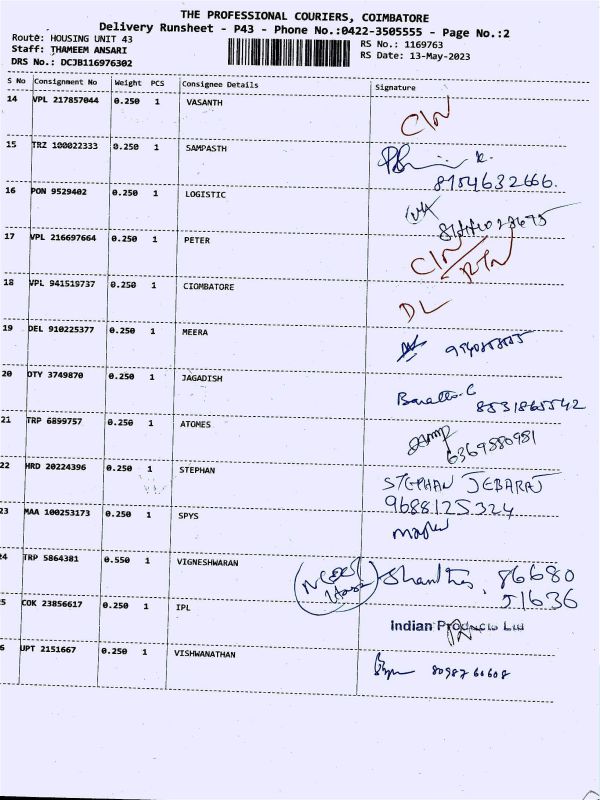 THE PROFESSIONAL COURIERS, COIMBATORE
Delivery Runsheet - P43 - Phone No.:0422-3505555 - Page No.:2
Route: HOUSING UNIT 43
RS No.: 1169763
Staff: THAMEEM ANSARI
RS Date: 13-May-2023
DRS No.: DCJB116976302
S No Consignment No Weight PCS Consignee Details Signature
14 VPL 217857044 0.250 1 VASANTH
15 TRZ 100022333 0.250 1 SAMPASTH
8154632666.
16 PON 9529402 0.250 1 LOGISTIC
17 VPL 216697664 0.250 1 PETER
18 VPL 941519737 0.250 1 CIOMBATORE
DL
19 DEL 910225377 0.250 1 MEERA
20 DTY 3749870 0.250 1 JAGADISH
8531865542
21 TRP 6899757 0.250 1 ATOMES
6369880981
22 HRD 20224396 0.250 1 STEPHAN
STEPHAN JEBARAJ
9688125324
23 MAA 100253173 0.250 1 SPYS
24 TRP 5864381 0.550 1 VIGNESHWARAN
86680
51636
5 COK 23856617 0.250 1 IPL
Indian Ltd
6 UPT 2151667 0.250 1 VISHWANATHAN
8098760608